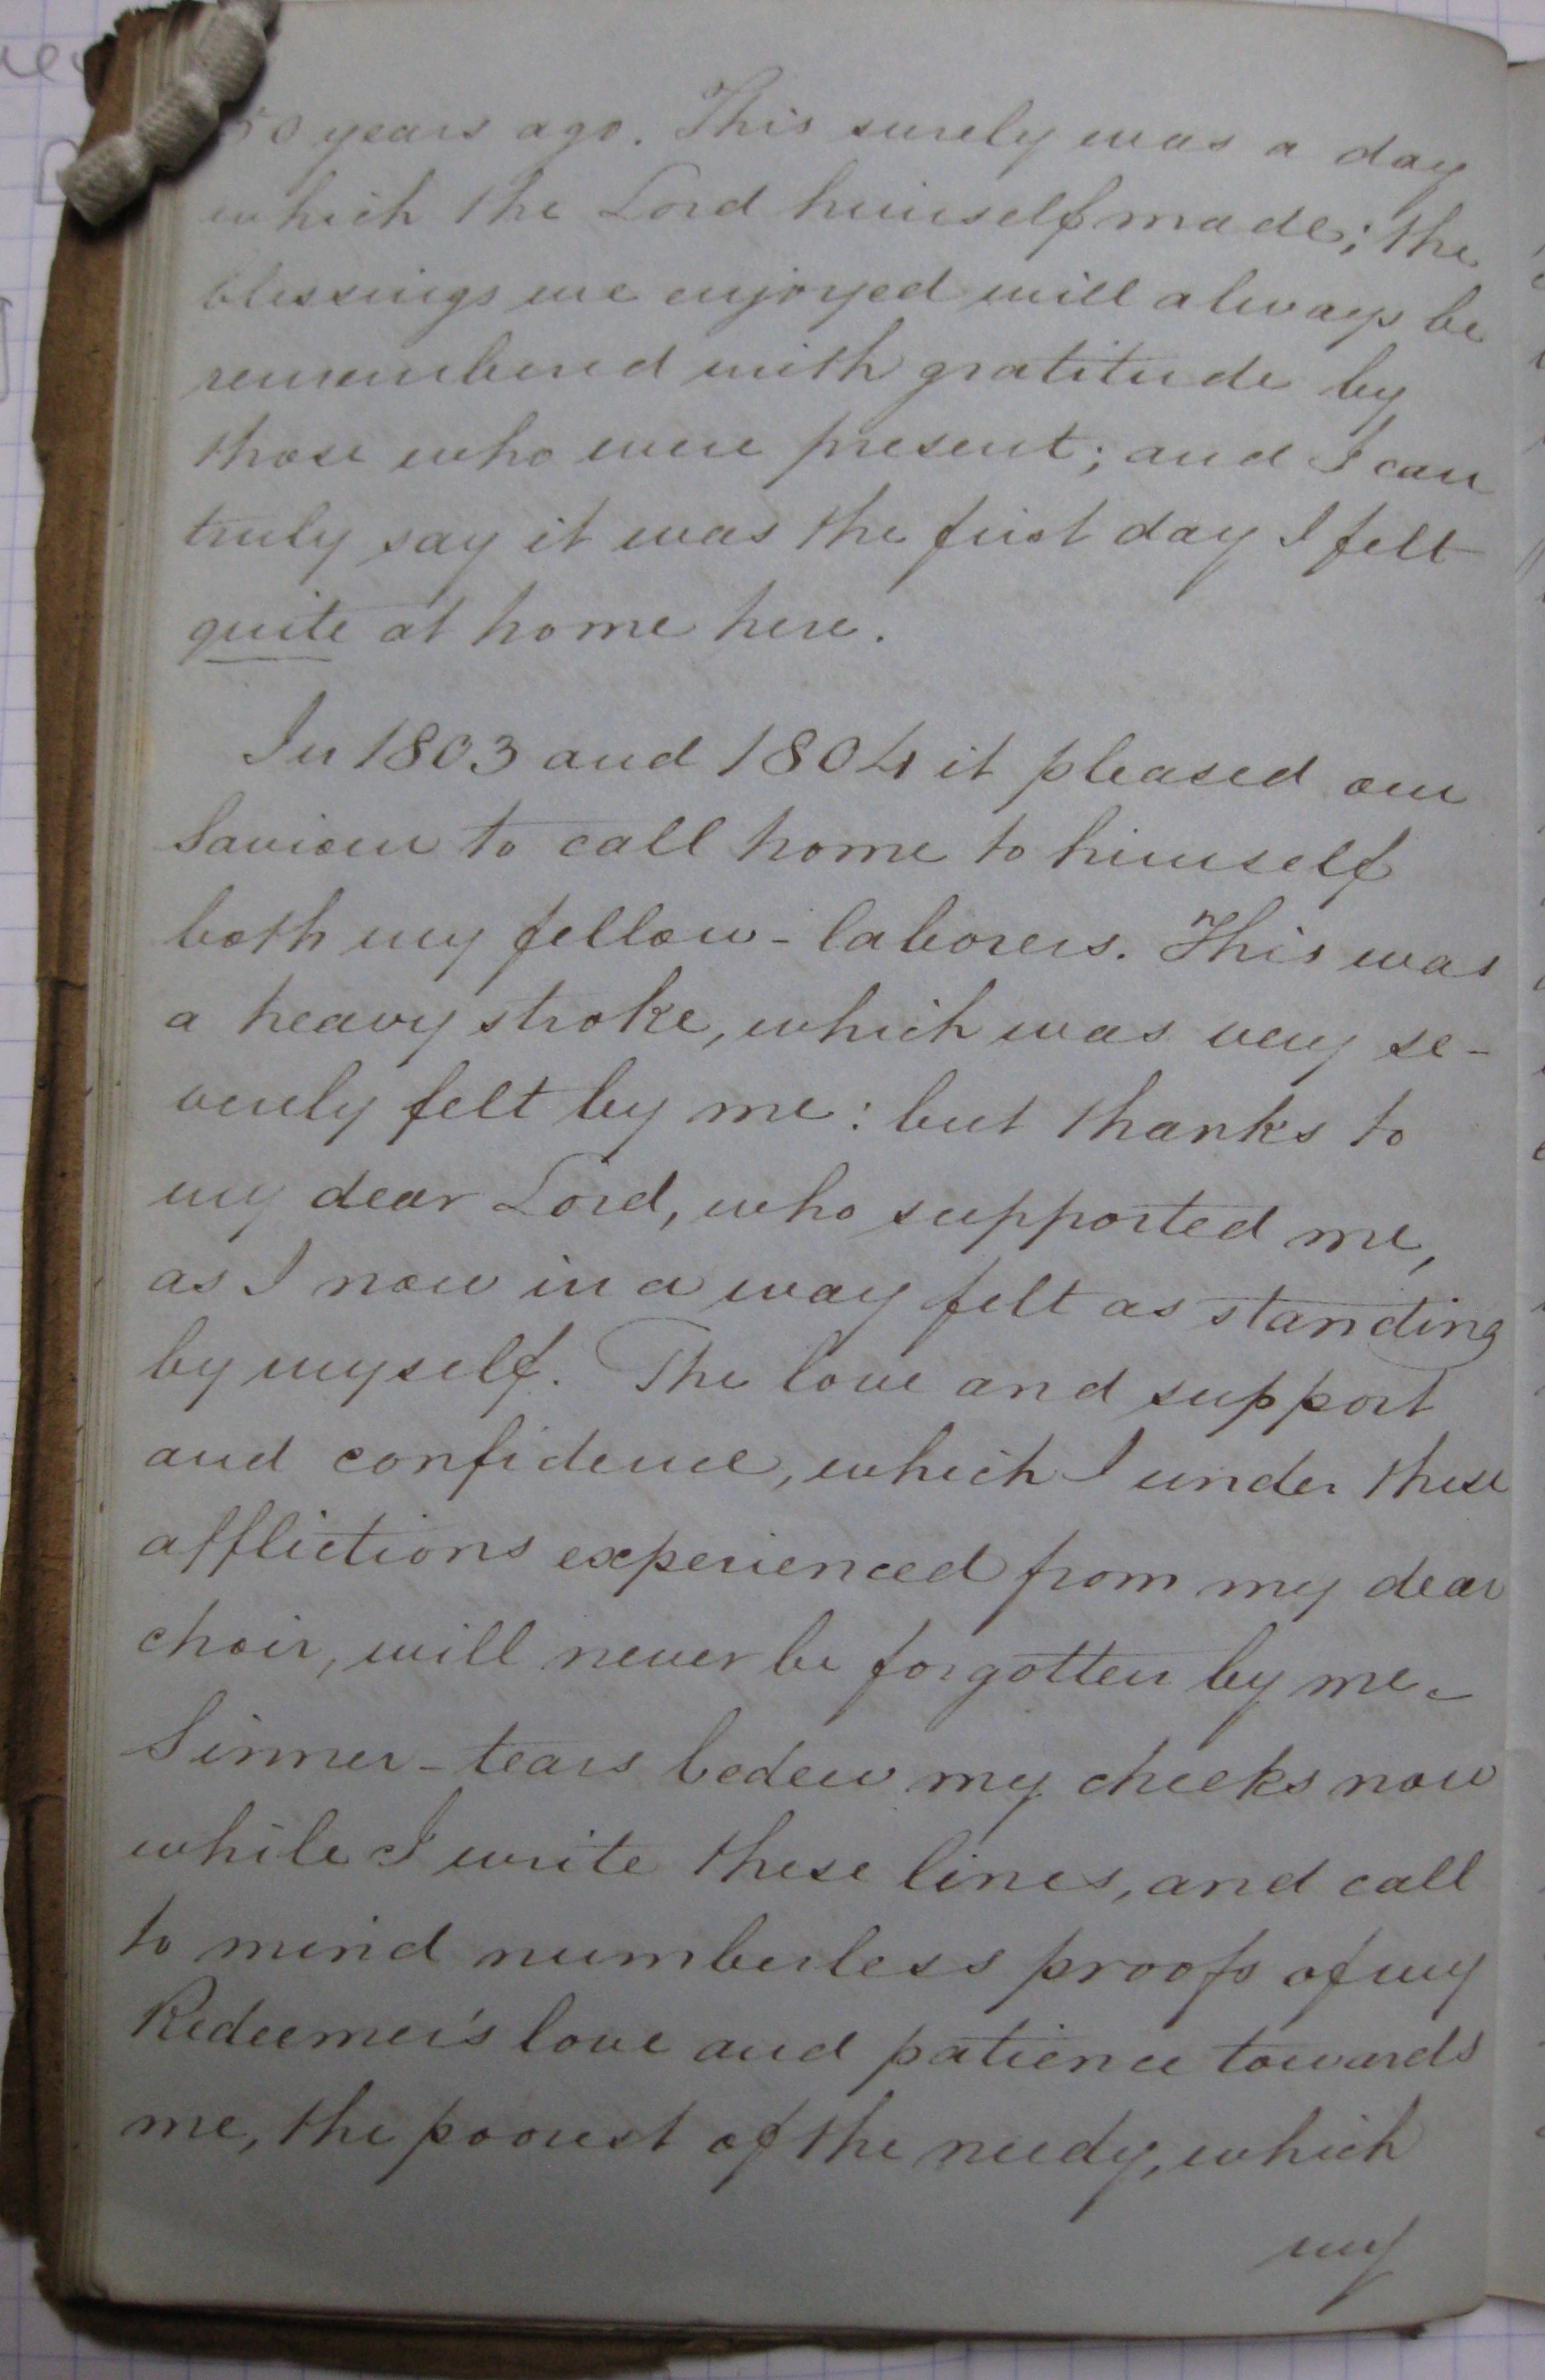 50 years ago. This surely was a day
which the Lord himself made; the
blessings we enjoyed will always be
remembered with gratitude by
those who were present; and I can
truly say it was the first day I felt
quite at home here.
In 1803 and 1804 it pleased our
Saviour to call home to himself
both my fellow-laborers. This was
a heavy stroke, which was very se-
verely felt by me: but thanks to
my dear Lord, who supported me,
as I now in a way felt as standing
by myself. The love and support
and confidence, which I under these
afflictions experienced from my dear
choir, will never be forgotten by me.
Sinner-tears bedew my cheeks now
while I write these lines, and call
to mind numberless proofs of my
Redeemer's love and patience towards
me, the poorest of the needy, which
my